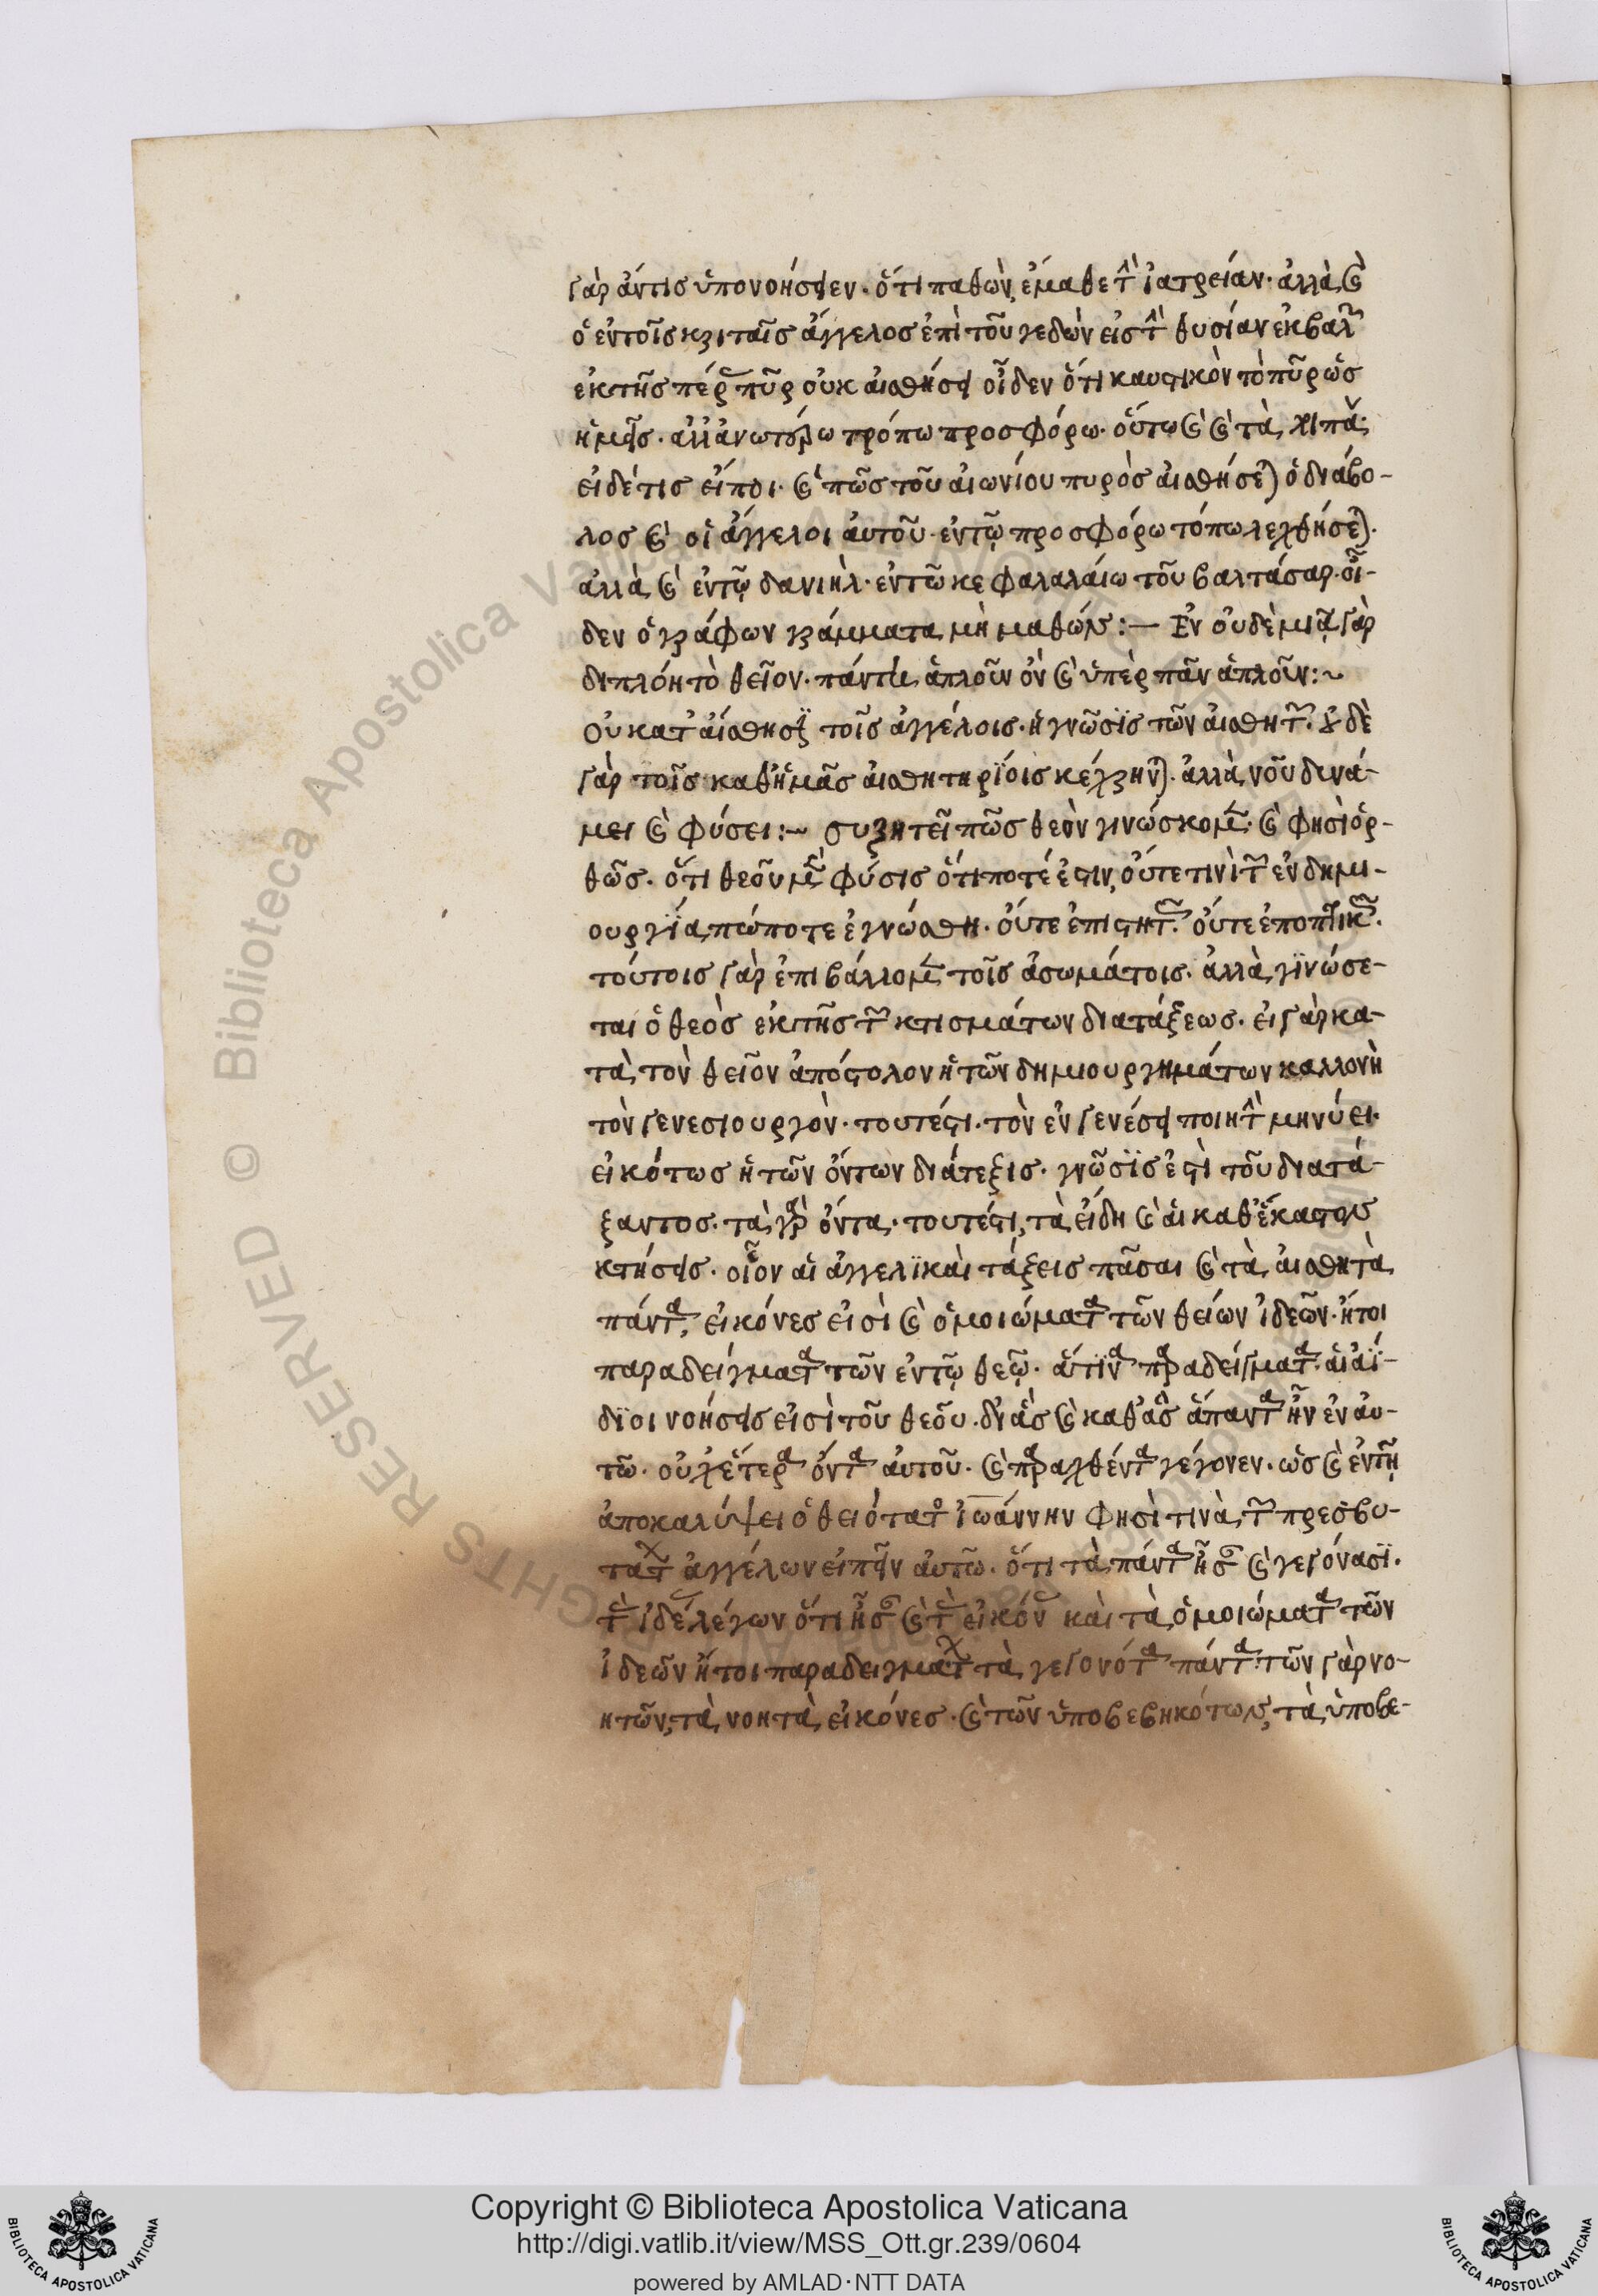 γὰρ ἄντις ὑπονοήσειεν. ὅτι παθὼν, ἔμαθε τὴν ἰατρείαν. ἀλλὰ καὶ
ὁ ἐν τοῖς κριταῖς ἄγγελος ἐπὶ τοῦ γεδὼν εἰς τὴν θυσίαν ἐκβαλὼν
ἐκ τῆς πέτρας πῦρ οὐκ αἰσθήσει οἶδεν ὅτι καυστικὸν τὸ πῦρ ὡς
ἡμεῖς. ἀλλ' ἀνωτέρω τρόπω προσφόρω. οὕτω καὶ καὶ τὰ
εἰ δέ τις εἴποι. καὶ πῶς τοῦ αἰωνίου πυρὸς αἰσθήσεται ὁ διάβο-
λος καὶ οἱ ἄγγελοι αὐτοῦ. ἐν τῷ προσφόρω τόπω λεχθήσεται.
ἀλλὰ καὶ ἐν τῷ δανιὴλ. ἐν τῶ κεφαλαλαίω τοῦ βαλτάσαρ. οἶ-
δεν ὁ γράφων γράμματα, μὴ μαθών :— Ἐν οὐδὲ μιᾷ γὰρ
διπλόη τὸ θεῖον. πάντη ἁπλοῦν ὂν καὶ ὑπὲρ πᾶν ἁπλοῦν :~
οὐ κατ' αἴσθησιν τοῖς ἀγγέλοις. ἡ γνῶσϊς τῶν αἰσθητῶν. οὐδὲ
γὰρ τοῖς καθ' ἡμᾶς αἰσθητηρΐοις κέχρηνται. ἀλλὰ νοῦ δυνά-
μει καὶ φύσει :~ συζητεῖ πῶς θεὸν γινώσκομεν. καὶ φησὶ ὀρ-
θῶς. ὅτι θεοῦ μὲν φύσις ὅτι ποτέ ἐστιν, οὔτε τινὶ τῶν ἐν δημι-
ουργΐα, πώποτε ἐγνώσθη. οὔτε ἐπιστητῶν. οὔτε ἐποπτικῶν.
τούτοις γὰρ ἐπιβάλλομεν τοῖς ἀσωμάτοις. ἀλλὰ, γϊνώσε-
ται ὁ θεὸς ἐκ τῆς τῶν κτισμάτων διατάξεως. εἰ γὰρ κα-
τὰ τὸν θεῖον ἀπόστολον ἡ τῶν δημιουργημάτων καλλονὴ
τὸν γενεσιουργὸν. τουτέστι. τὸν ἐν γενέσει ποιητὴν μηνύει.
εἰκότως ἡ τῶν ὄντων διάτεξις. γνῶσϊς ἐστὶ τοῦ διατά-
ξαντος. τὰ γὰρ ὄντα. τουτέστι, τὰ εἴδη καὶ αἱ καθ' ἕκαστον
κτήσεις. οἷον αἱ ἀγγελϊκὰι τάξεις πᾶσαι καὶ τὰ αἰσθητὰ
πάντα, εἰκόνες εἰσὶ καὶ ὁμοιώματα τῶν θείων ἰδεῶν. ἤτοι
παραδείγματα τῶν ἐν τῷ θεῷ. ἅτϊνα παραδείγματα. αἱ ἀΐ-
δϊοι νοήσεις εἰσὶ τοῦ θεοῦ. δι' ἃς καὶ καθ' ἃς ἅπαντα ἦν ἐν αὐ-
τῶ. οὐχ ἕτερα ὄντα αὐτοῦ. καὶ παραχθέντα γέγονεν. ὡς καὶ ἐν τῇ
ἀποκαλύψει ὁ θειότατος ἰωάννην φησὶ τινὰ τῶν πρεσβυ-
τάτων ἀγγέλων εἰπεῖν αὐτῶ. ὅτι τὰ πάντα ἦσαν καὶ γεγόνασϊ.
τὰς ἰδέας λέγων ὅτι ἦσαν καὶ τὰς εἰκόνας καὶ τὰ ὁμοιώματα τῶν
ἰδεῶν ἤτοι παραδειγμάτων τὰ γεγονότα πάντα. τῶν γὰρ νο-
ητῶν, τὰ νοητὰ, εἰκόνες. καὶ τῶν ὑποβεβηκότων, τὰ ὑποβε-
Copyright © Biblioteca Apostolica Vaticana
http://digi.vatlib.it/view/MSS_Ott.gr.239/0604
powered by AMLAD·NTT DATA